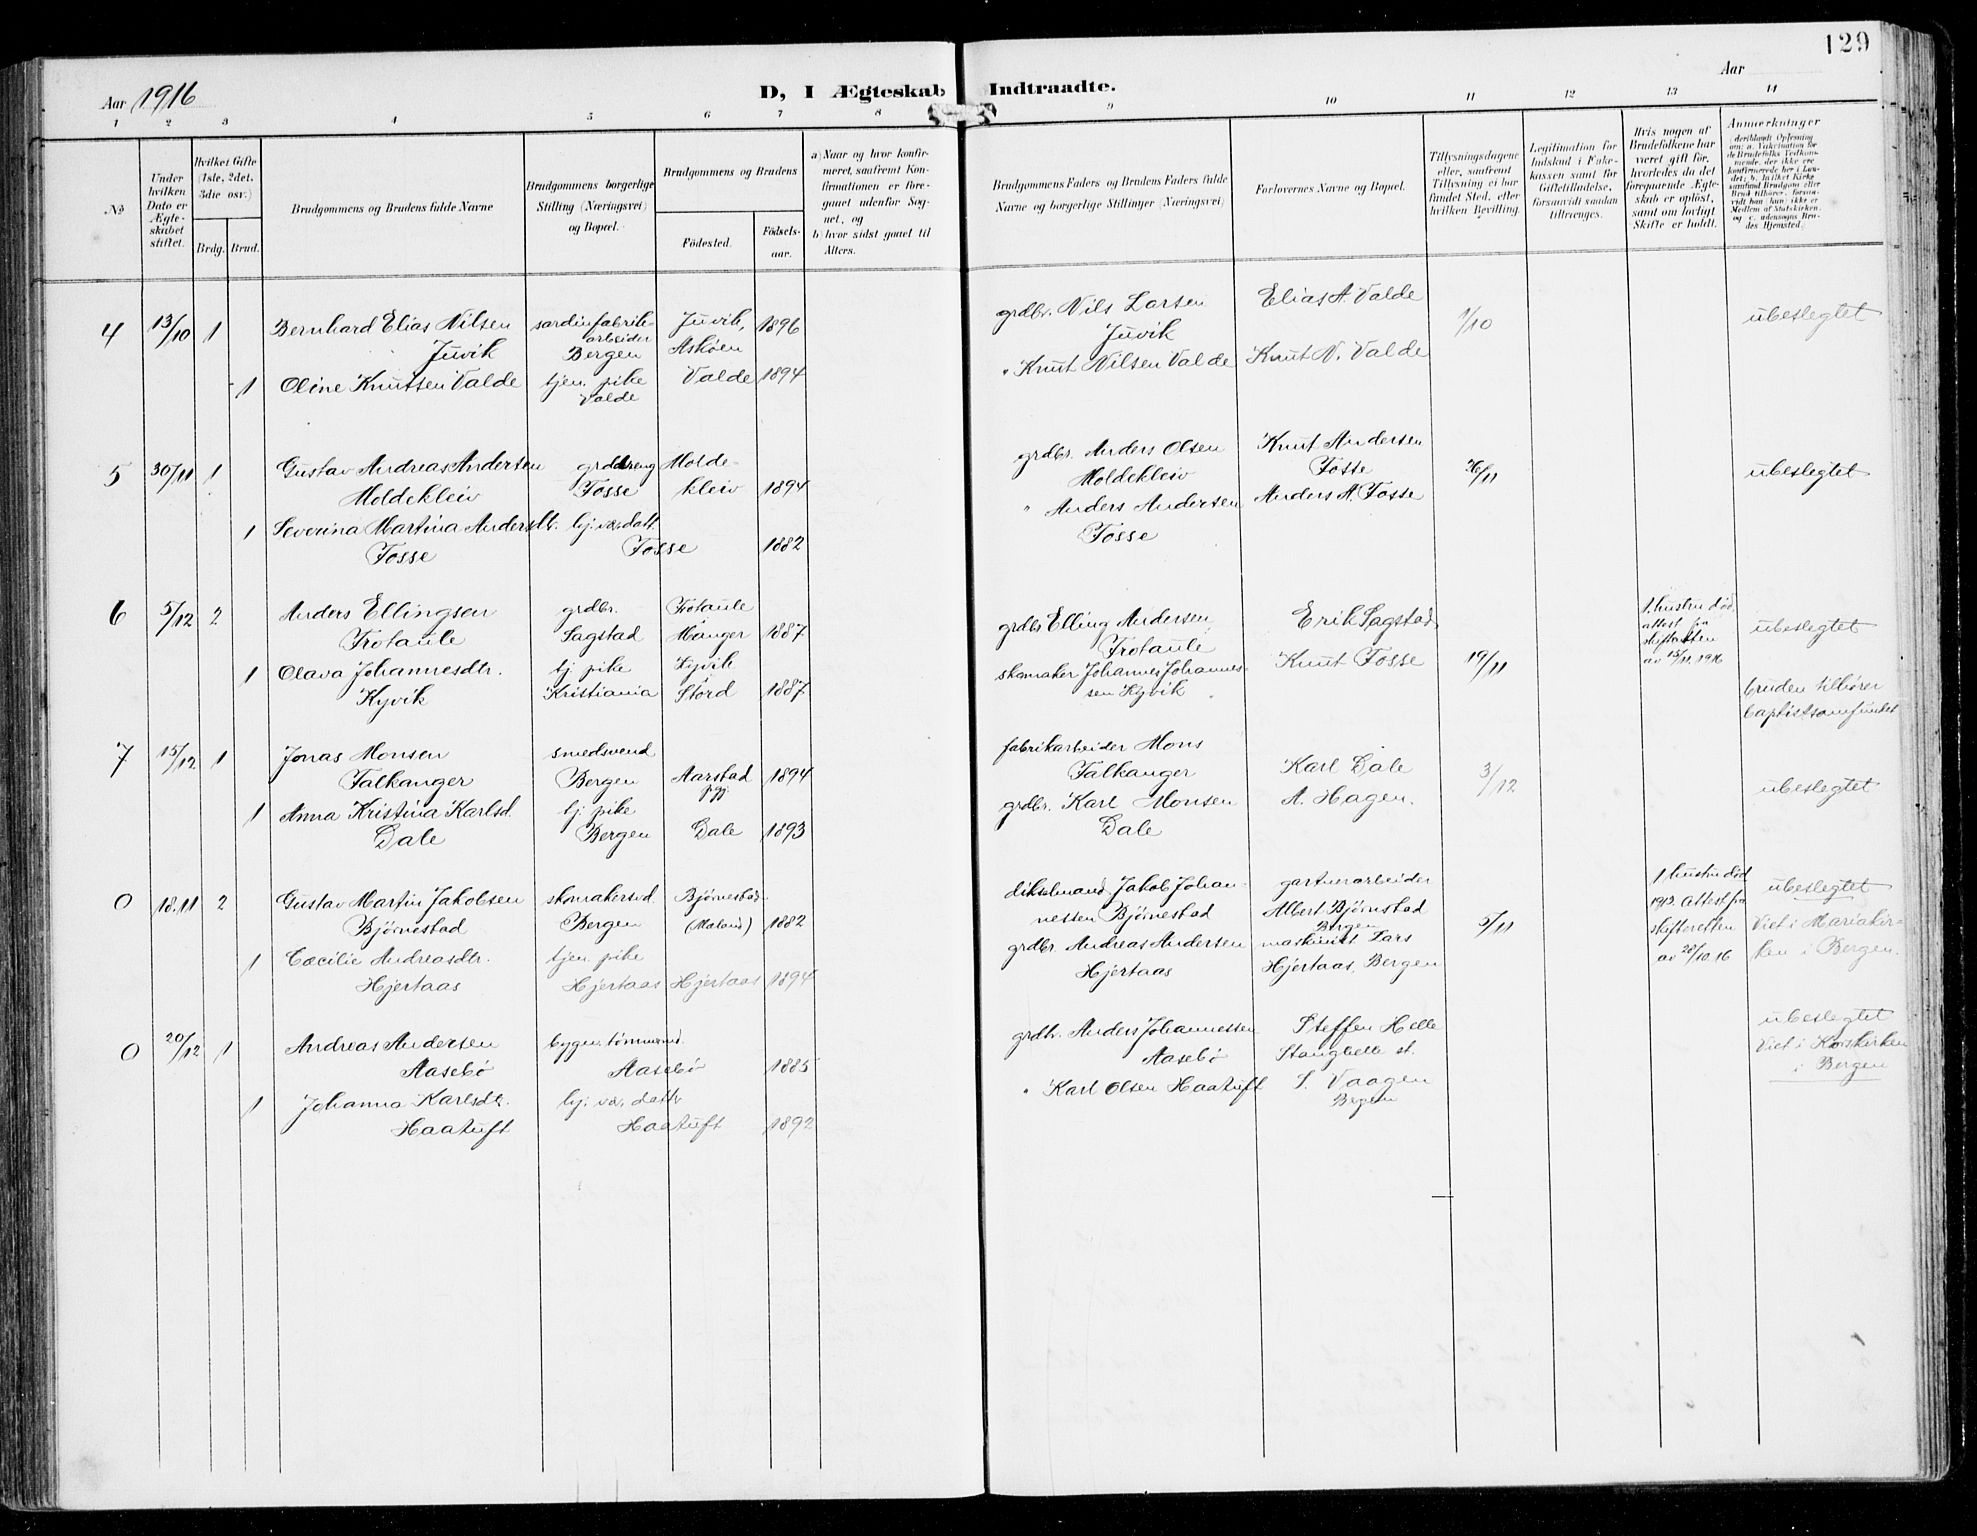 129
Aar 1916
D, I Ægteskab Indtraadte.
Aar
1 2 3 4 5 6 7 8 9 10 11 12 13 14
No
Under hvilken Dato er Ægteskabet stiftet.
Hvilket Gifte (1ste, 2det, 3die osv.)
Brdg. Brud.
Brudgommens og Brudens fulde Navne
Brudgommens borgerlige Stilling (Næringsvei) og Bopæl.
Brudgommens og Brudens
Fødested.
Fødselsaar.
a) Naar og hvor konfirmeret, saafremt Konfirmationen er foregaaet udenfor Sognet, og
b) hvor sidst gaaet til Alters.
Brudgommens Faders og Brudens Faders fulde Navne og borgerlige Stillinger (Næringsvei)
Forlovernes Navne og Bopæl.
Tillysningsdagene eller, saafremt Tillysning ei har fundet Sted, efter hvilken Bevilling.
Legitimation for Indskud i Enkekassen samt for Giftetilladelse, forsaavidt saadan tiltrænges.
Hvis nogen af Brudefolkene har været gift før, hvorledes da det foregaaende Ægteskab er opløst, samt om lovligt Skifte er holdt.
Anmærkninger
4 13/10 1 Bernhard Elias Nilsen sardinfabrik- Juvik, 1896 grdbr. Nils Larsen Elias A. Valde 1/10 ubeslegtet
Juvik arbeider Bergen Askøen Juvik
1 Oline Knutsen Valde tjen. pike Valde 1894 " Knut Nilsen Valde Knut N. Valde
Valde
5 30/11 1 Gustav Andreas Andersen grddreng Molde- grdbr. Anders Olsen Knut Andersen 26/11 ubeslegtet
Moldekleiv Fosse kleiv 1894 Moldekleiv Fosse
1 Severina Martina Andersdtr. hj. vær. datt. " Anders Andersen Anders A. Fosse
Fosse Fosse 1882 Fosse
6 5/12 2 Anders Ellingsen grdbr. Frotaule grdbr Elling Andersen Erik Sagstad 1. hustru død,
Frotaule Sagstad Manger 1887 Frotaule attest fra skifteretten ubeslegtet
1 Olava Johannesdtr. tj pike Kyvik skomaker Johannes Johannes- Knut Fosse 19/11 av 15/11 1916
Kyvik Kristiania Stord 1887 sen Kyvik bruden tilhører
baptistsamfundet
7 15/12 1 Jonas Monsen smedsvend fabrikarbeider Mons
Falkanger Bergen Aarstad 1894 Falkanger Karl Dale 3/12
pgj. ubeslegtet
1 Anna Kristina Karlsd. tj. pike grdbr. Karl Monsen A. Hagen.
Dale Bergen Dale 1893 Dale
0 18.11 2 Gustav Martin Jakobsen skomakersvd Bjørnestad Jakob Johan- gartnerarbeider 1 hustru død ubeslegtet
Bjørnestad Bergen 1882 nessen Bjørnestad Albert Bjørnstad 5/11 1912. Attest fra Viet i Mariakir-
Bergen skifteretten
1 Cæcilie Andreasdtr. tjen. pike grdbr. Andreas Andersen maskinist Lars av 28/10.16 ken i Bergen.
Hjertaas Hjertaas Hjertaas 1894 Hjertaas Hjertaas, Bergen
0 20/12 1 Andreas Andersen bygn. tømmermd. grdbr. Anders Johannessen Steffen Helle ubeslegtet
Aasebø Aasebø 1885 Aasebø Stanghelle st. Viet i Korskirken
i Bergen
1 Johanna Karlsdtr. hj. vær. dattr " Karl Olsen Haatuft S. Vaagen
Haatuft Haatuft 1892 Bergen